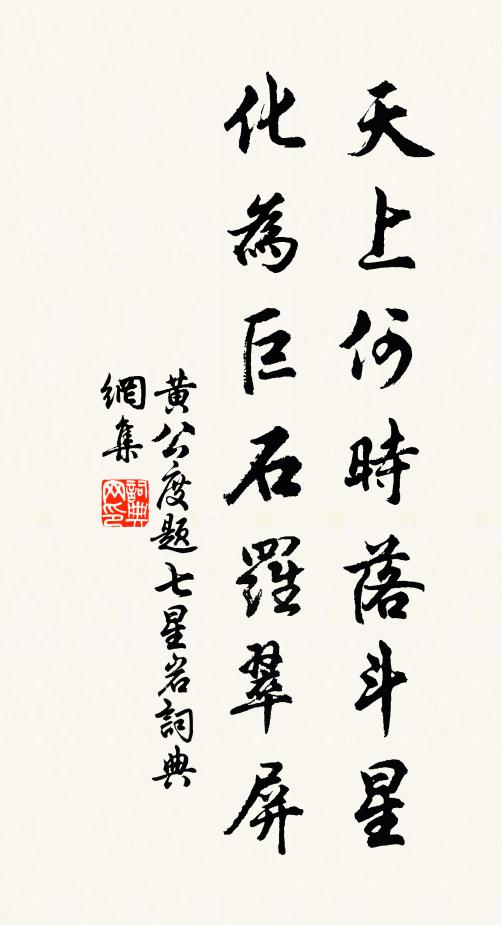 天上何時落斗星
化為巨石羅翠屏
黄公度題七星岩詞典
網集
詞典网印